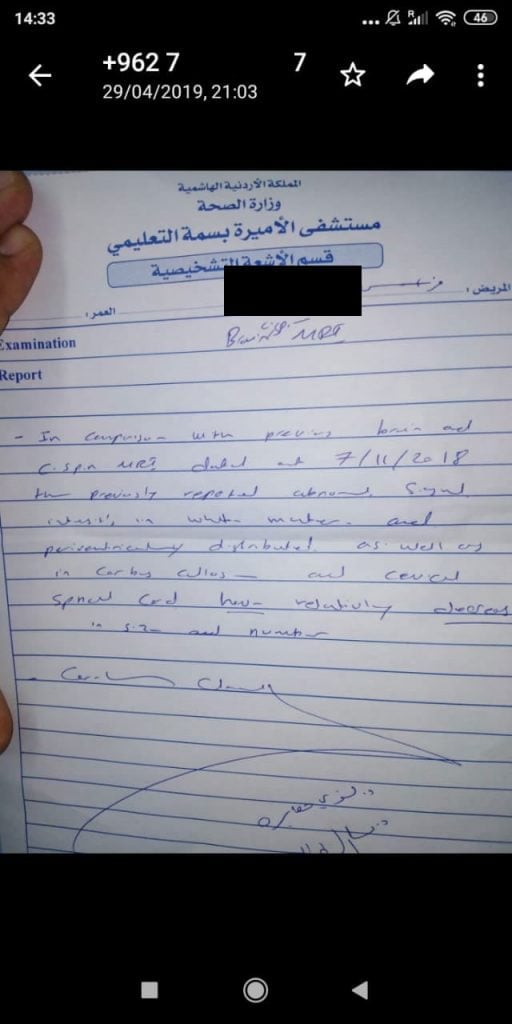 14:33
46
+962 7 7
29/04/2019, 21:03
المملكة الأردنية الهاشمية
وزارة الصحة
مستشفى الأميرة بسمة التعليمي
قسم الأشعة التشخيصية
المريض :
العمر :
Examination
Brain MRI
Report
- In comparison with previous brain and
C. spin MRI dated at 7/11/2018
the previously reported abnormal signal
intensity in white matter and
periventricularly distributed as well as
in corpus and cervical
spinal cord have relatively decreas
in size and number